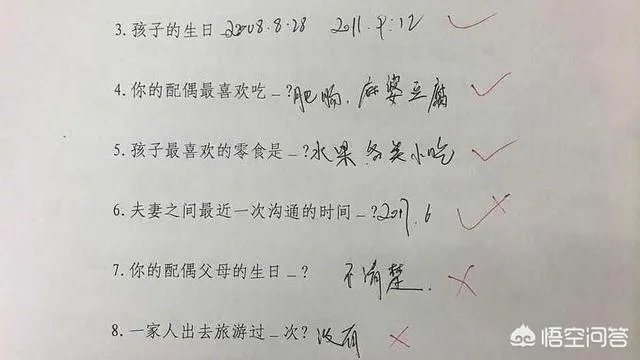 3. 孩子的生日 2008.8.28 2011.9.12
4. 你的配偶最喜欢吃_?肥肠、麻婆豆腐
5. 孩子最喜欢的零食是_?水果 各类小吃
6. 夫妻之间最近一次沟通的时间_?2017.6
7. 你的配偶父母的生日_? 不清楚.
8. 一家人出去旅游过_次? 没有
悟空问答